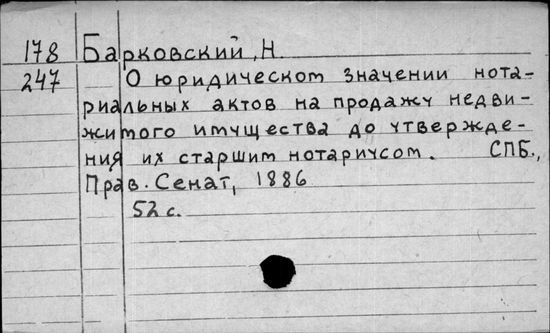 178 Барковский, Н.
247 О юридическом значении нота-
риальных актов на продажу недви-
жимого имущества до утвержде-
ния их старшим нотариусом. СПБ.,
Прав. Сенат, 1886
52 с.